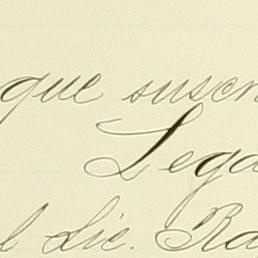 que suscri
Lega
l Lic. Ra